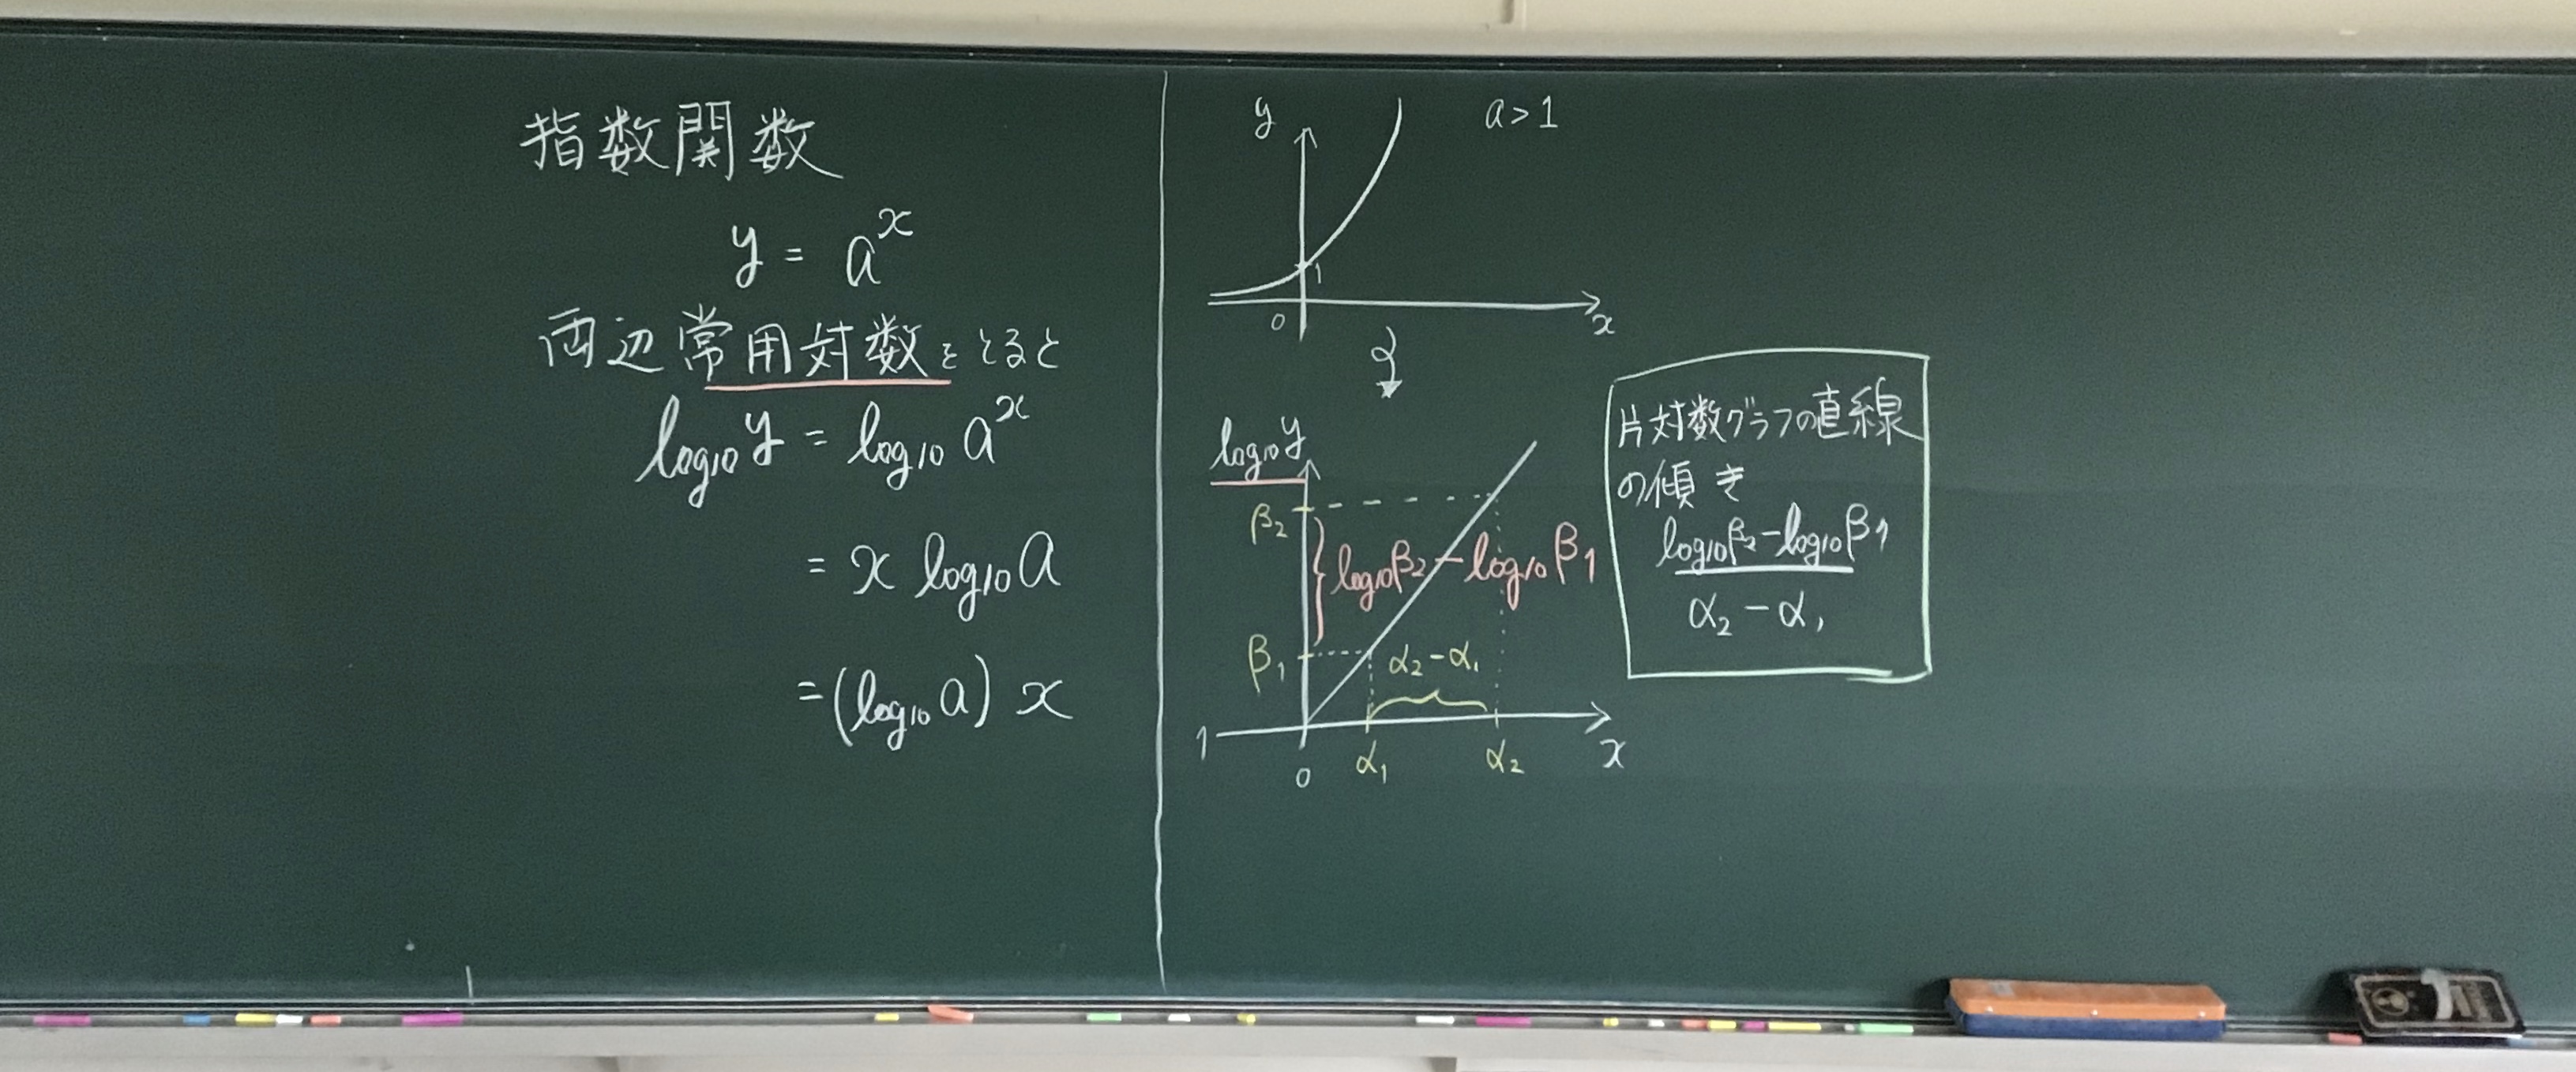 指数関数
y = a^x
両辺常用対数をとると
log₁₀ y = log₁₀ a^x
= x log₁₀ a
= (log₁₀ a) x
y
a > 1
1
0
x
log₁₀ y
β₂
log₁₀ β₂ − log₁₀ β₁
β₁
α₂ − α₁
1
0
α₁
α₂
x
片対数グラフの直線
の傾き
log₁₀ β₂ − log₁₀ β₁
α₂ − α₁